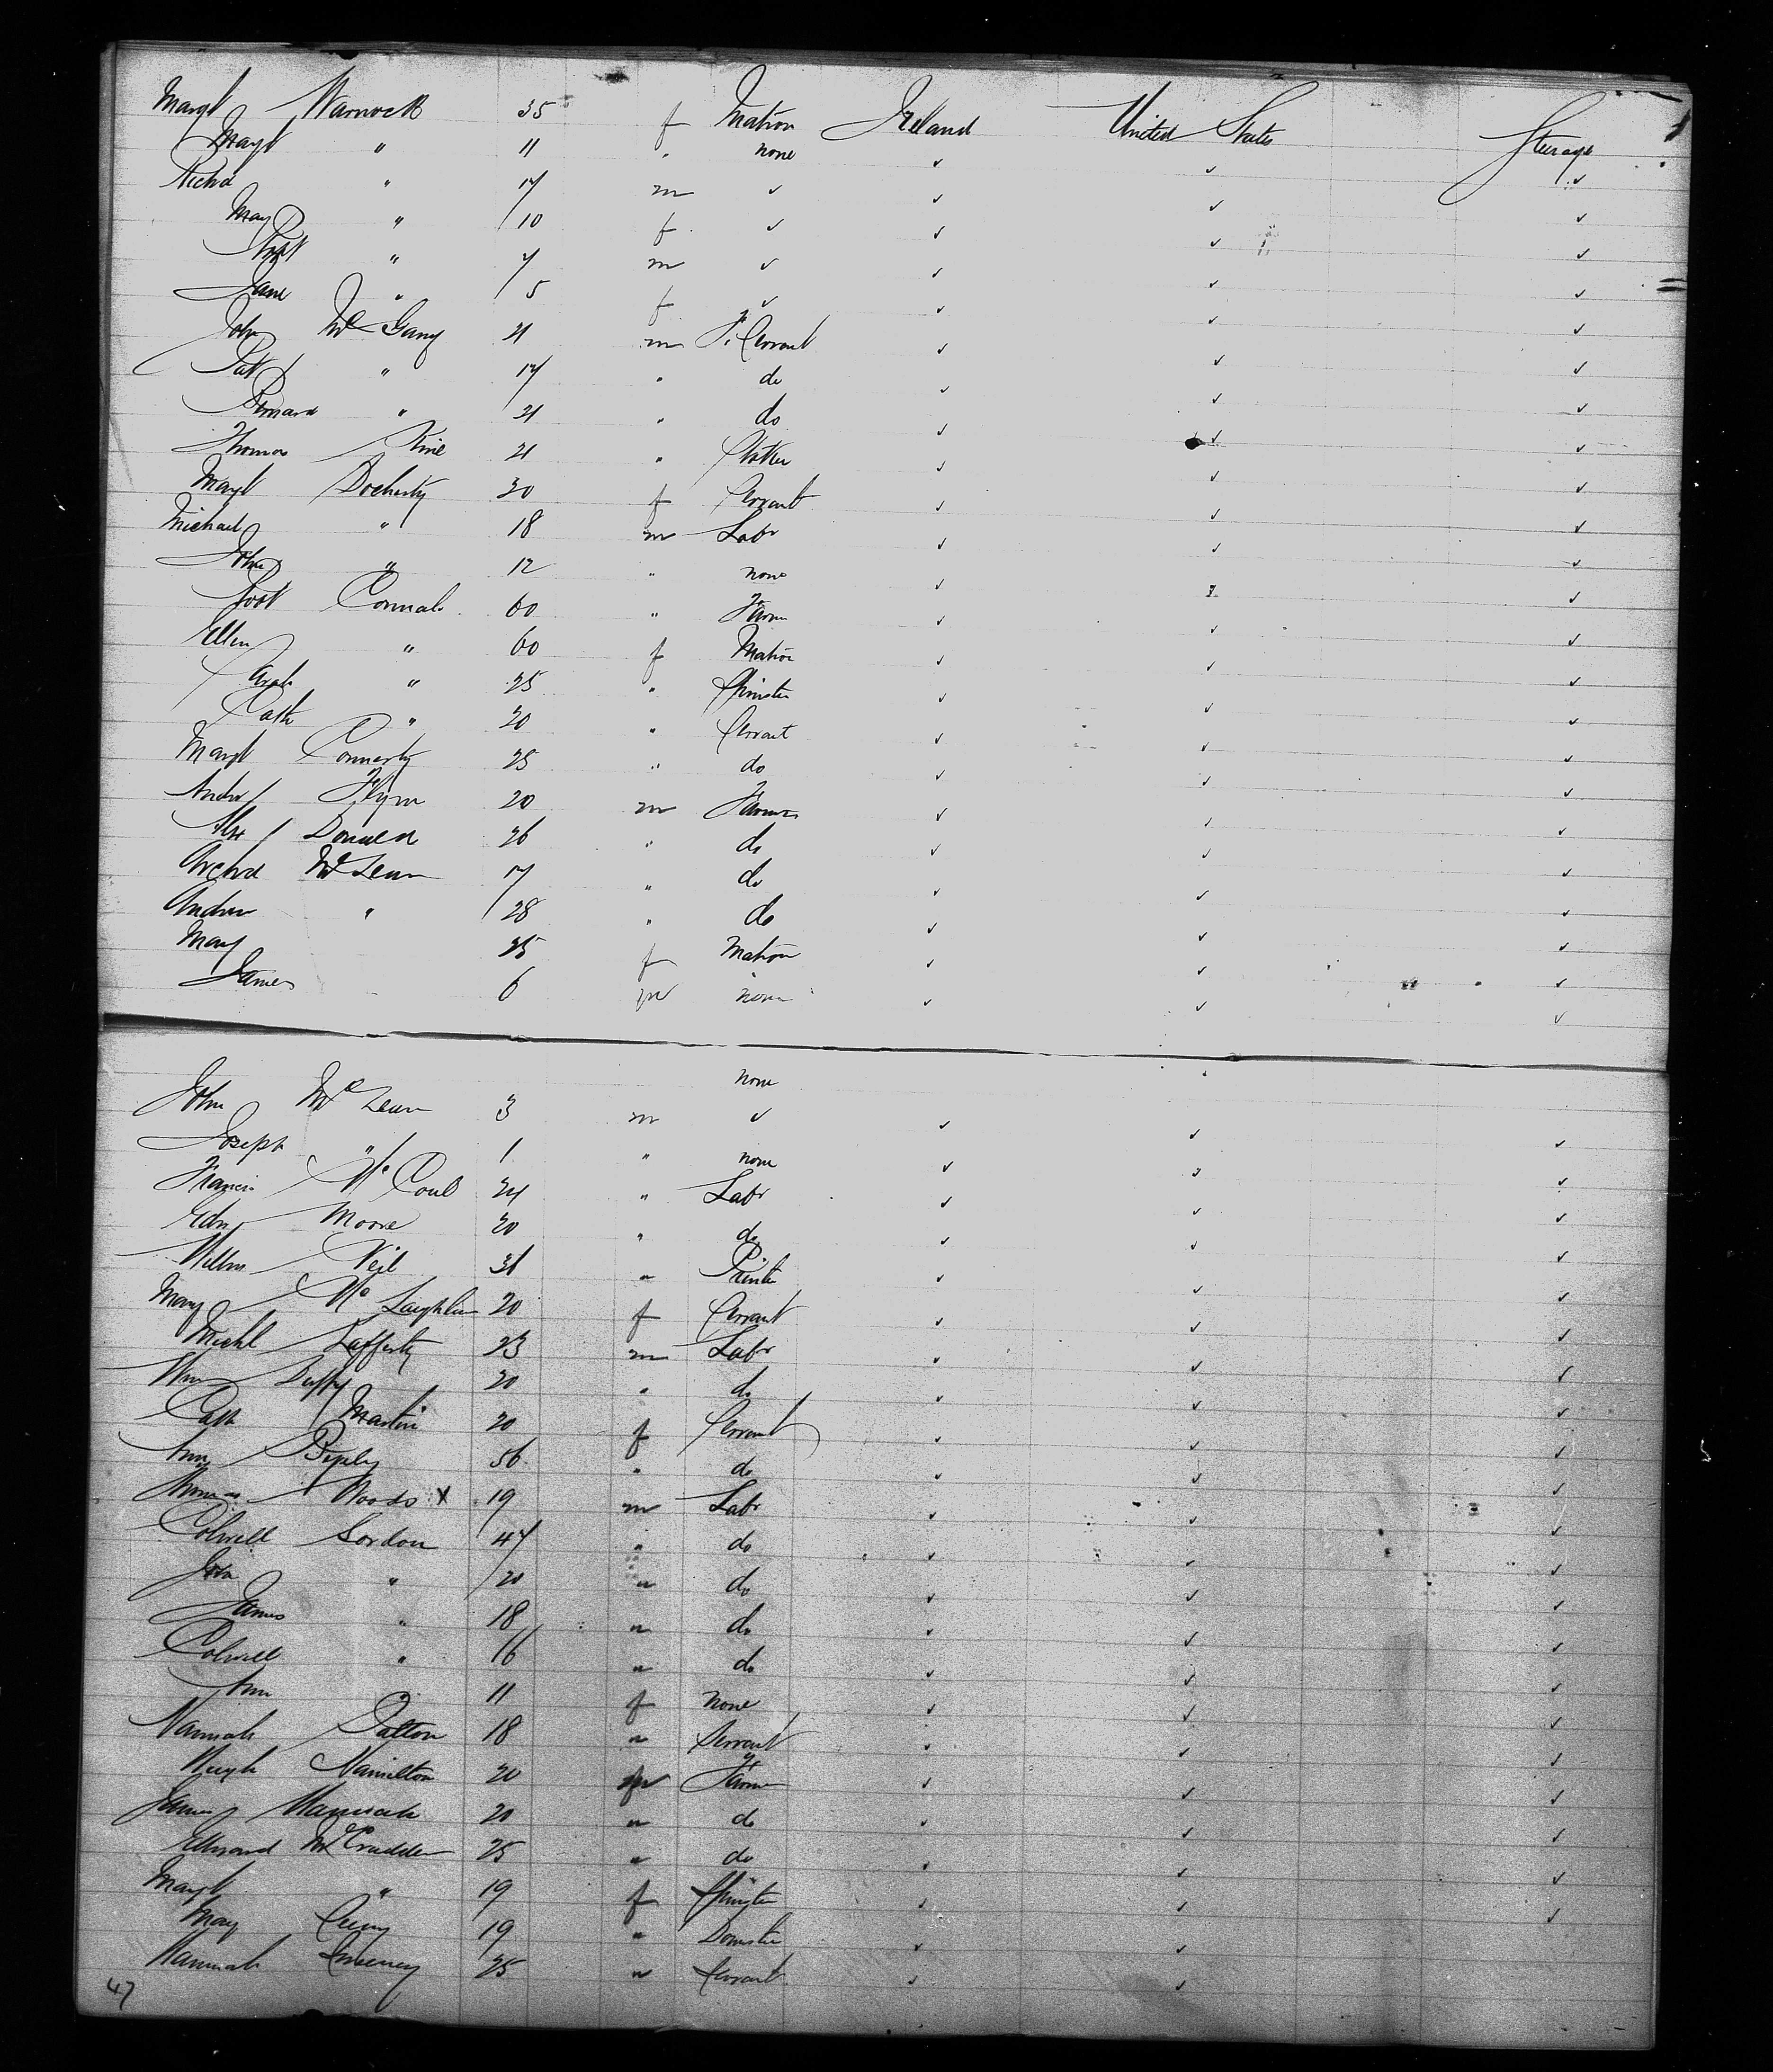 Margt Warnock 35 f Matron Ireland United States Steerage
Margt " 11 " none ✓ ✓ ✓
Richd " 17 m ✓ ✓ ✓ ✓
Mary " 10 f ✓ ✓ ✓ ✓
Robt " 7 m ✓ ✓ ✓ ✓
Jane " 5 f ✓ ✓ ✓ ✓
John McGary 21 m F. Servant ✓ ✓ ✓
Pat " 17 " do ✓ ✓ ✓
Bernard " 21 " do ✓ ✓ ✓
Thomas 21 " ✓ ✓ ✓
Margt Docherty 30 f Servant ✓ ✓ ✓
Michael " 18 m Labr ✓ ✓ ✓
John " 12 " none ✓ ✓ ✓
Robt 60 " Farmr ✓ ✓ ✓
Ellen " 60 f Matron ✓ ✓ ✓
Sarah " 25 " Spinster ✓ ✓ ✓
Cath " 20 " Servant ✓ ✓ ✓
Margt Connerty 25 " do ✓ ✓ ✓
Andw Flynn 20 m Farmer ✓ ✓ ✓
Alex Donald 26 " do ✓ ✓ ✓
Archd McLean 17 " do ✓ ✓ ✓
Andrew " 28 " do ✓ ✓ ✓
Mary 25 f Matron ✓ ✓ ✓
James 6 m none ✓ ✓ ✓
none
John McLean 3 m ✓ ✓ ✓ ✓
Joseph " 1 " none ✓ ✓ ✓
Francis McCoul 24 " Labr ✓ ✓ ✓
Edw Moore 20 " do ✓ ✓ ✓
Willm Neil 31 " Printer ✓ ✓ ✓
Mary McLaughlin 20 f Servant ✓ ✓ ✓
Michl Lafferty 23 m Labr ✓ ✓ ✓
Wm Duffy 20 " do ✓ ✓ ✓
Cath Martin 20 f Servant ✓ ✓ ✓
Ann 56 " do ✓ ✓ ✓
Thomas Woods X 19 m Labr ✓ ✓ ✓
Colwell Gordon 47 " do ✓ ✓ ✓
John " 20 " do ✓ ✓ ✓
James " 18 " do ✓ ✓ ✓
Colwell " 16 " do ✓ ✓ ✓
Ann 11 f none ✓ ✓ ✓
Hannah Patton 18 " Servant ✓ ✓ ✓
Hugh Hamilton 20 m Farmr ✓ ✓ ✓
James Hannah 20 " do ✓ ✓ ✓
Edward McCrudden 25 " do ✓ ✓ ✓
Margt " 19 f Spinster ✓ ✓ ✓
Mary 19 " Domestic ✓ ✓
Hannah Sweeney 25 " Servant ✓ ✓
47